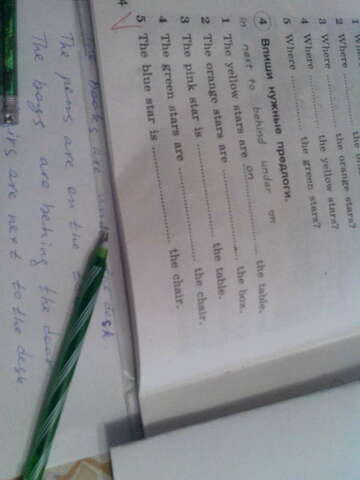 2 Where the orange stars?
3 Where the yellow stars?
4 Where the green stars?
5 Where
4 Впиши нужные предлоги.
in next to behind under on
1 The yellow stars are on the table.
2 The orange stars are the box.
3 The pink star is the table.
4 The green stars are the chair.
5 The blue star is the chair.
4
books are desk.
The pens are on the
The boys are behing the door
are next to the desk